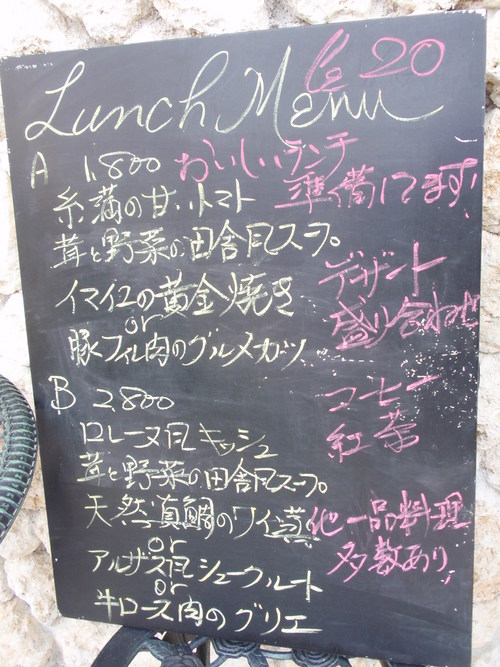 Le 20
Lunch Menu
A 1,800
おいしいランチ
準備してます!
糸満の甘いトマト
茸と野菜の田舎風スープ。
イマイユの黄金焼き
or
豚フィレ肉のグルメカツ
デザート
盛り合わせ
コーヒー
紅茶
B 2,800
ロレーヌ風キッシュ
茸と野菜の田舎風スープ。
天然真鯛のワイン蒸
or
アルザス風シュークルート
or
牛ロース肉のグリエ
他一品料理
多数あり